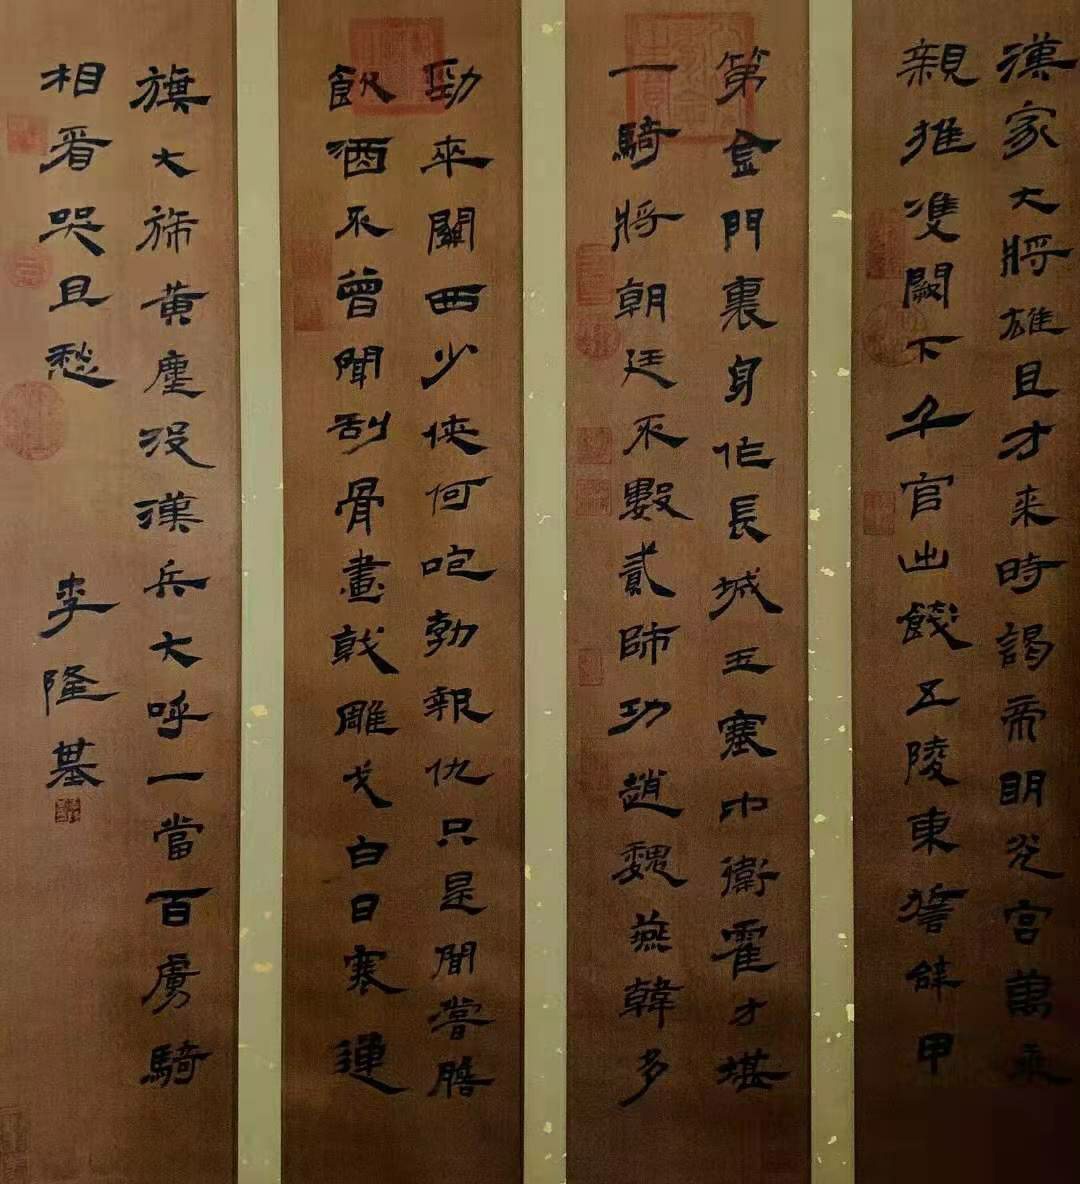 漢家大將雄且才来時謁帝眀光宮萬乘
親推雙闕下千官出餞五陵東誓辭甲
第金門裏身作長城玉塞中衛霍才堪
一騎將朝廷不數貳師功趙魏燕韓多
勁卒關西少俠何咆勃報仇只是聞嘗膽
飲酒不曾聞刮骨畫戟雕戈白日寒連
旗大旆黃塵没漢兵大呼一當百虜騎
相看哭且愁
李隆基